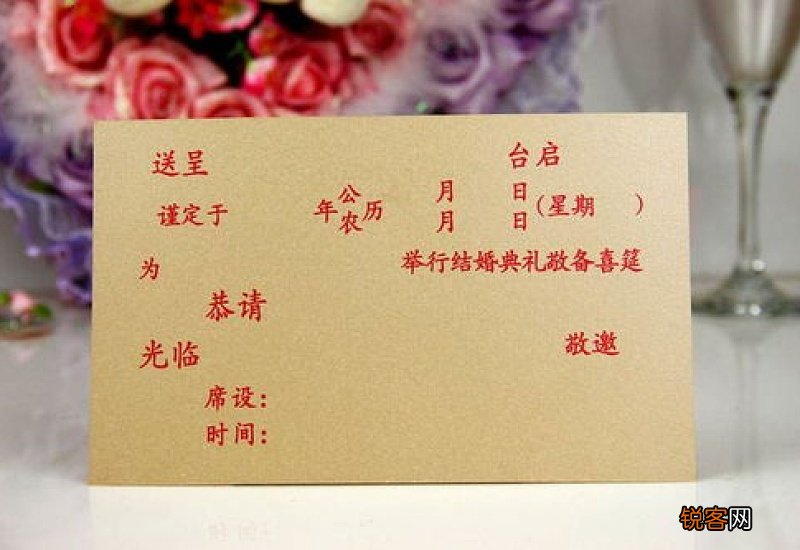 送呈 台启
谨定于 年公历 月 日(星期 )
农 月 日
为 举行结婚典礼敬备喜筵
恭请
光临 敬邀
席设:
时间:
锐客网